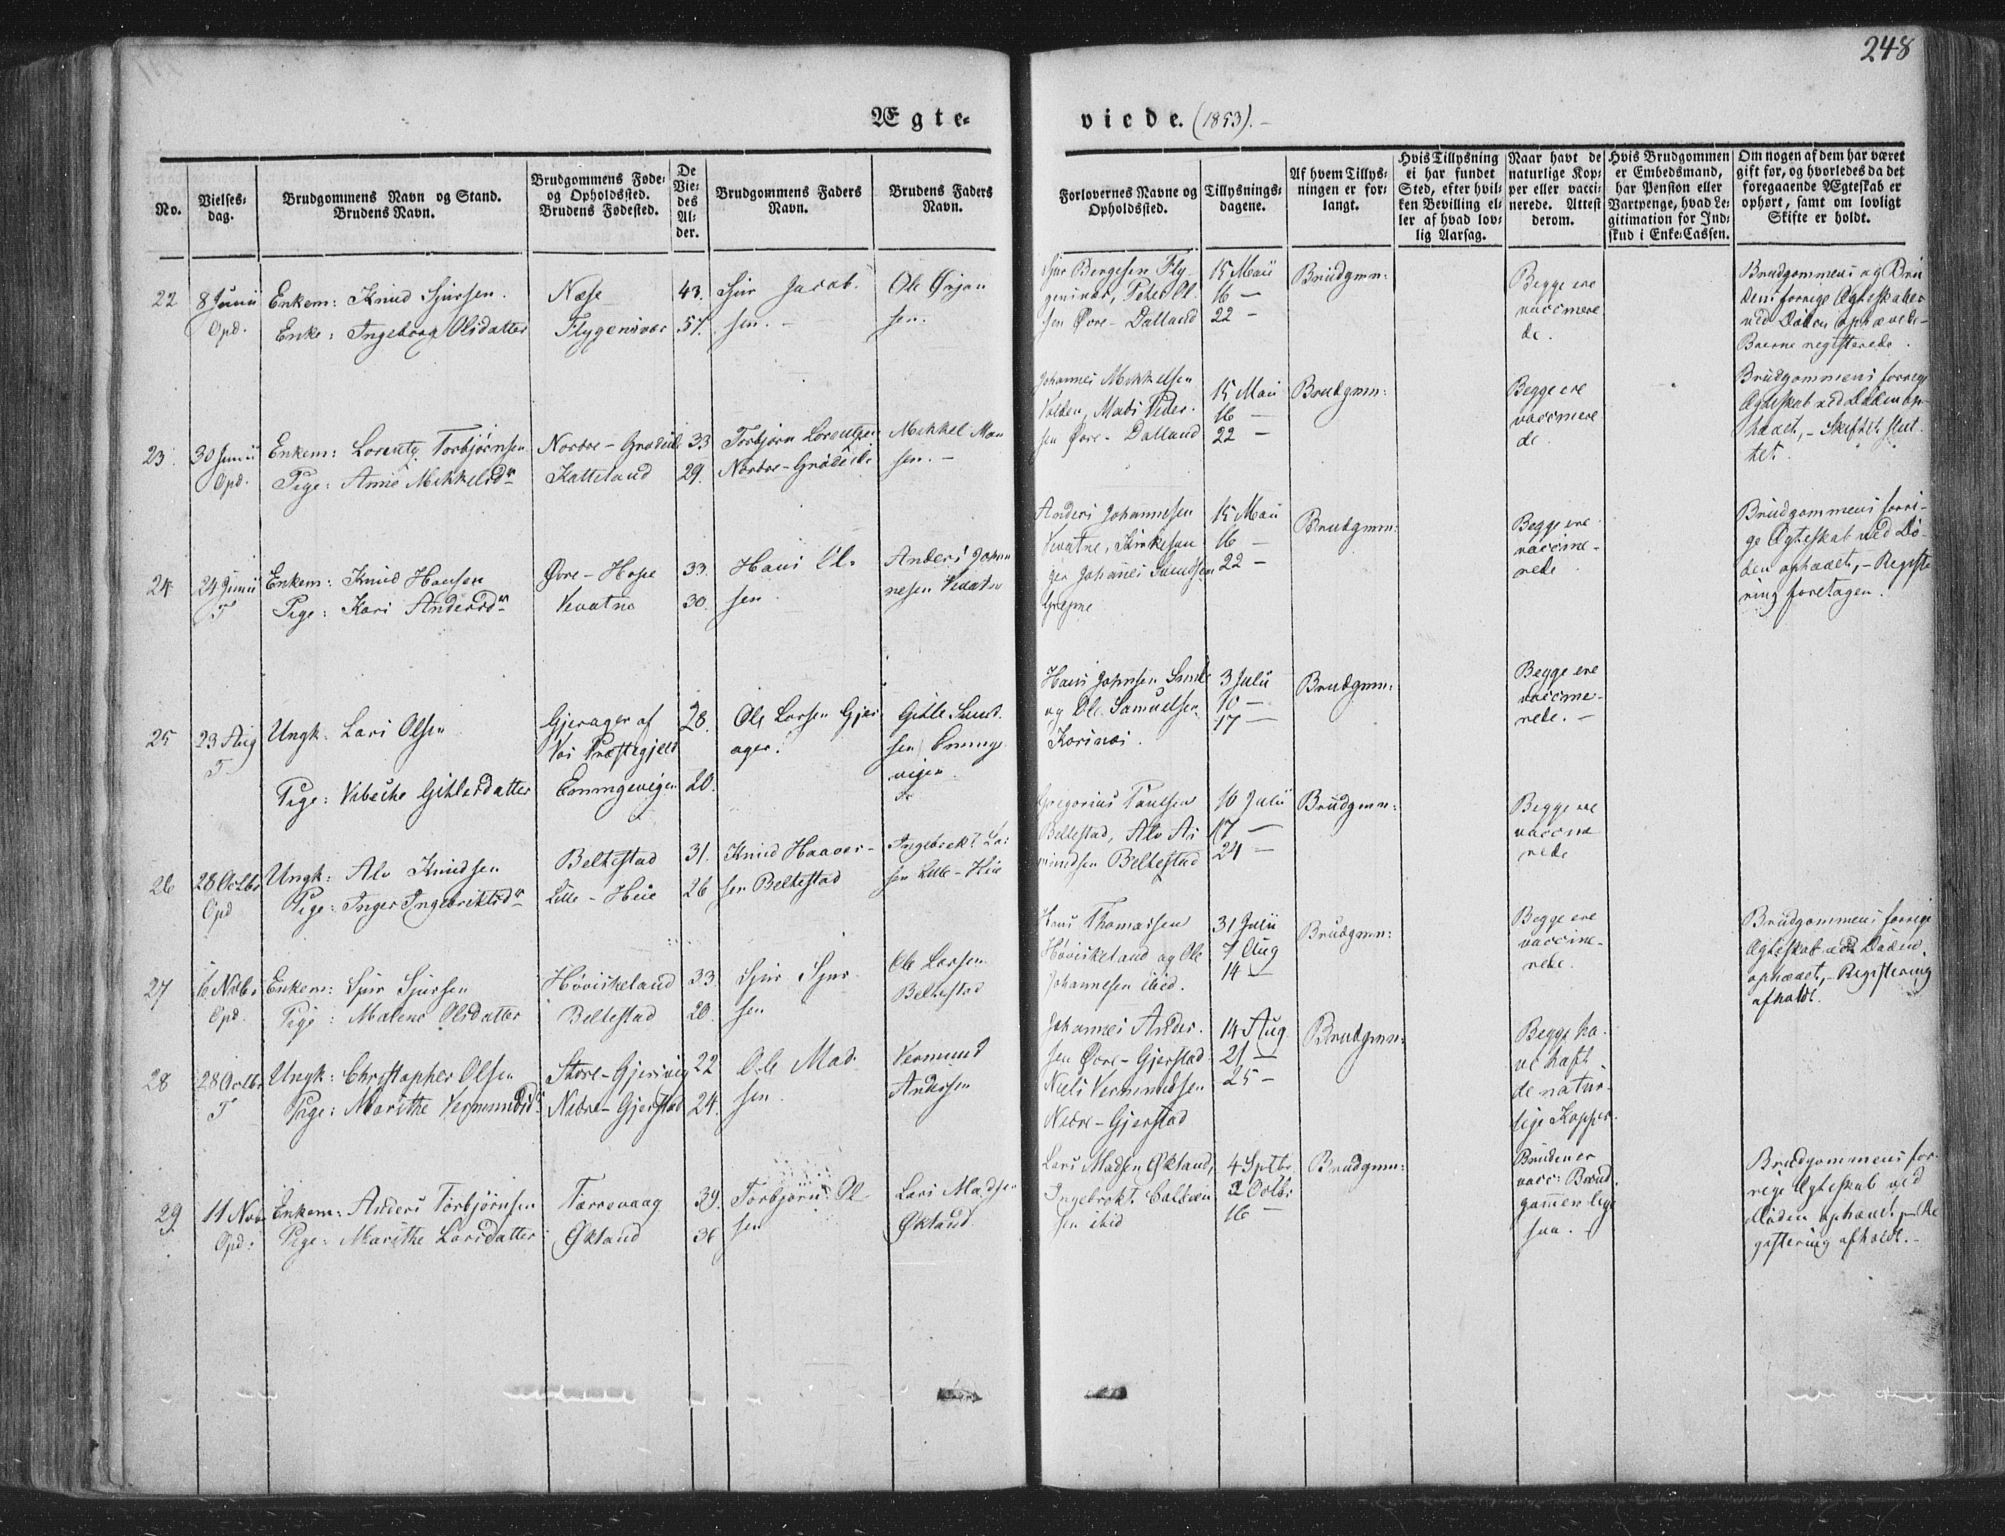 248
Ægte-
viede. (1853).-
No.
Vielses-
dag.
Brudgommens Navn og Stand.
Brudens Navn.
Brudgommens Føde-
og Opholdssted.
Brudens Fødested.
De
Vie-
des
Al-
der.
Brudgommens Faders
Navn.
Brudens Faders
Navn.
Forlovernes Navne og
Opholdssted.
Tillysnings-
dagene.
Af hvem Tillys-
ningen er for-
langt.
Hvis Tillysning
ei har fundet
Sted, efter hvil-
ken Bevilling el-
ler af hvad lov-
lig Aarsag.
Naar havt de
naturlige Kop-
per eller vacci-
nerede. Attest
derom.
Hvis Brudgommen
er Embedsmand,
har Pension eller
Vartpenge, hvad Le-
gitimation for Ind-
skud i Enke-Cassen.
Om nogen af dem har været
gift før, og hvorledes da det
foregaaende Ægteskab er
ophørt, samt om lovligt
Skifte er holdt.
22
8 Junii
Opd.
Enkem: Knud Sjursen.
Enke: Ingeborg Olsdatter
Næse
Flygensvær
43.
57.
Sjur Jacob-
sen. -
Ole Ørjan
sen.
Sjur Bergesen Fly-
gensvær, Peter Ol
sen Øvre-Dalland
15 Maii
16 -
22 -
Brudgmn:
Begge ere
vaccinere
de.
Brudgommens og Bru
dens forrige Ægteskaber
ved Døden ophævede-
Boerne registerede.
23.
30 Junii
Opd.
Enkem: Lorentz Torbjørnsen
Pige: Anne Mikkelsdr
Nordre-
Katteland
33
29.
Torbjørn Lorentzen
Nordre-
Mikkel Mon
sen. -
Johannes Mikkelsen
Volden, Mads Peder-
sen Øvre-Dalland
15 Maii
16 -
22 -
Brudgmn:
Begge ere
vaccinere
de.
Brudgommens forrige
Ægteskab ved Døden op
hævet, - Skiftet slut
tet.
24
24 Junii
T
Enkem: Knud Hansen
Pige: Kari Andersdr
Øvre-Hope
Vevatne
33.
30.
Hans Ol-
sen.
Anders Johan
nesen Vevatne
Anders Johannesen
Vevatne, Kirkesan
ger Johannes
15 Maii
16 -
22 -
Brudgmn:
Begge ere
vaccine-
rede.
Brudgommens forri-
ge Ægteskab ved Dø-
den ophævet, - Registe
ring foretagen.
25
23 Aug
T
Ungk: Lars Olsen
Pige: Vibeche Gitlesdatter
Gjerager af
Vos Præstegjeld
Enningevigen
28.
20.
Ole Larsen Gjer
ager.
Gitle
sen
vigen.
Hans Johnsen
og Ole Samuelsen
Korsnæs
3 Julii
10 -
17 -
Brudgmn:
Begge ere
vaccine-
rede. -
26
28 Octbr
Opd
Ungk: Alv Knudsen
Pige: Inger Ingebriktsdr
Beltestad
Lille-Heie
31.
26
Knud Haaver-
sen Beltestad
Ingebrekt Lar
sen Lille-Heie
Gregorius Paulsen
Beltestad, Alv As
mundsen Beltestad
10 Julii
17 -
24 -
Brudgmn:
Begge ere
vaccine
rede
27
6 Nvbr
Opd.
Enkem: Sjur Sjursen
Pige: Malene Olsdatter
Høviskeland
Beltestad
33.
20.
Sjur Sjur-
sen
Ole Larsen
Beltestad
Thomassen
Høviskeland og Ole
Johannesen ibid.
31 Julii
7 Aug
14 -
Brudgmn:
Begge ere
vaccine-
rede.
Brudgommens forrige
Ægteskab ved Døden
ophævet, - Registering
afholdt.
28
28 Octbr
T
Ungk: Christopher Olsen
Pige: Marithe Vermundsdr
Store-Gjersvig
Nedre-Gjerstad
22
24.
Ole Mad-
sen.
Vermund
Andersen
Johannes Ander-
sen Øvre-Gjerstad
Niels Vermundsen
Nedre-Gjerstad
14 Aug
21 -
25 -
Brudgmn:
Begge ha-
ve haft
de natur-
lige Kopper
29
11 Nvbr
Opd:
Enkem: Anders Torbjørnsen
Pige: Marithe Larsdatter
Tørrevaag
Økland
39.
36
Torbjørn Ol
sen
Lars Madsen
Økland
Lars Madsen Økland,
Ingebrekt
sen ibid
4 Sptbr
2 Octbr
16 -
Brudgmn:
Bruden er
vacc: Brud
gommen lige
saa.
Brudgommens for-
rige Ægteskab ved
Døden ophævet - Re
gistering afholdt. -